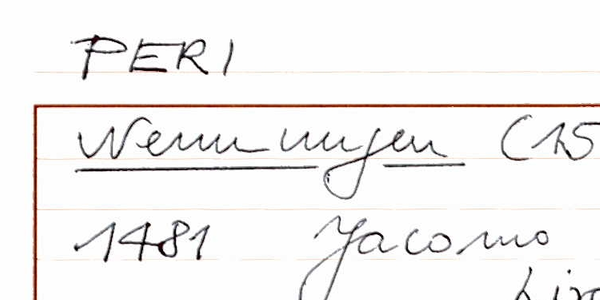 PERI
Nennungen (15
1481 Jacomo